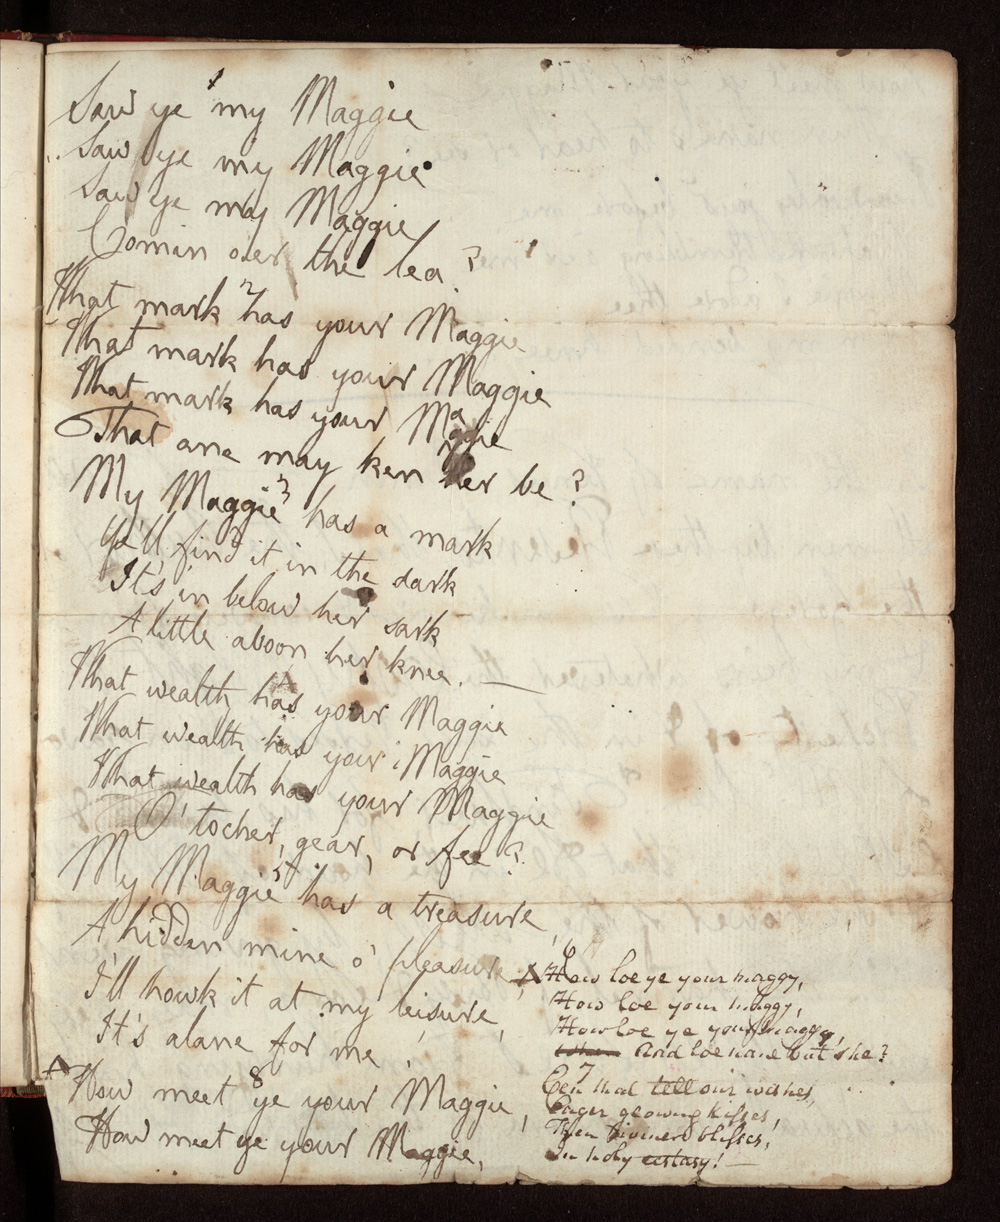 Saw ye my Maggie
Saw ye my Maggie
Saw ye my Maggie
Comin oer the lea?
2
What mark has your Maggie
What mark has your Maggie
What mark has your Maggie
That ane may ken her be?
3
My Maggie has a mark
Ye'll find it in the dark
It's in below her sark
A little aboon her knee.
What wealth has your Maggie
What wealth has your Maggie
What wealth has your Maggie
O' tocher, gear, or fee?
5
My Maggie has a treasure,
A hidden mine o' pleasure,
I'll howk it at my leisure,
It's alane for me.
8
How meet ye your Maggie,
How meet ye your Maggie,
6
How loe ye your maggy,
How loe your maggy,
How loe ye your maggy,
And loe nane but she?
7
Een that tell our wishes,
Eager glowing kisses,
Then diviner blisses,
In holy ecstasy!